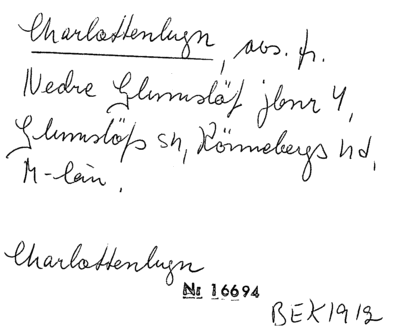 Charlottenlugn, avs. fr.
Nedre Glumslöf jbnr 4,
Glumslöfs sn, Rönnebergs hd,
M-län.
Charlottenlugn
Nr 16694
BEK 1912